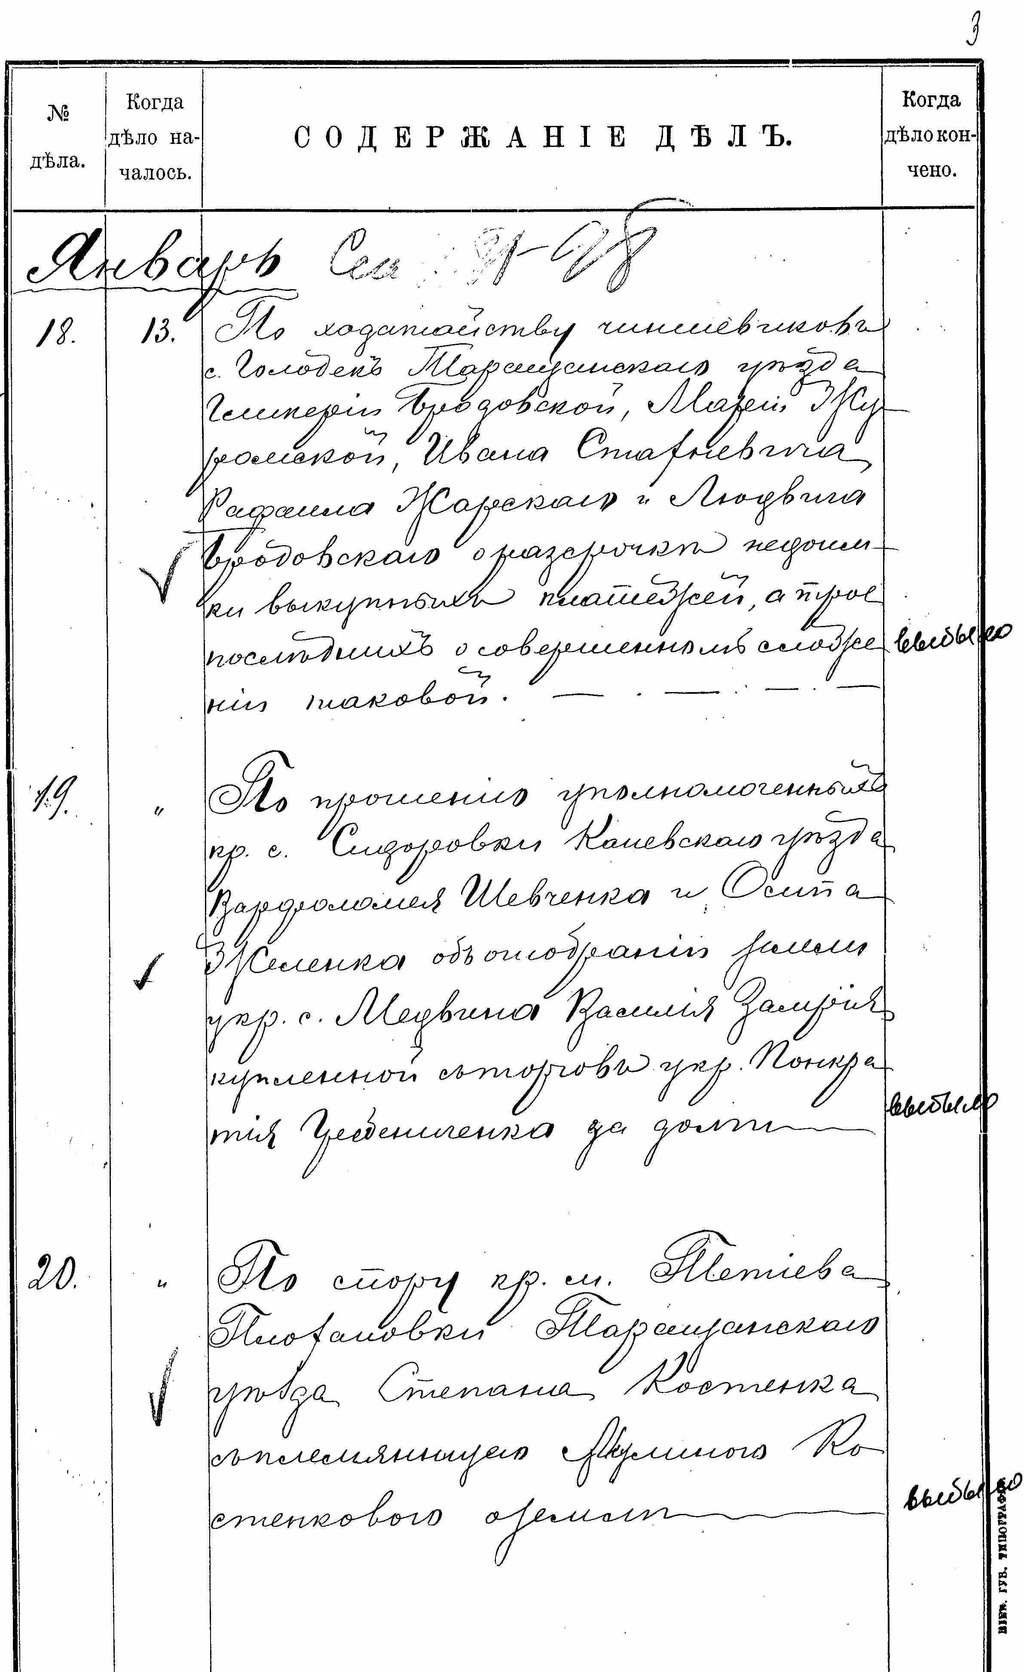 3
№ дѣла.
Когда дѣло началось.
СОДЕРЖАНІЕ ДѢЛЪ.
Когда дѣло кончено.
Январь
18. 13. По ходатайству чиншевиковъ
с. Голодекъ Таращанскаго уѣзда
Гликеріи Бродовской, Маріи Жу-
рамской, Ивана Стафневича
Рафаила Жарскаго и Людвига
Бродовскаго о разсрочкѣ недоим-
ки выкупныхъ платежей, а трое
послѣднихъ о совершенномъ сложе
ніи таковой.
выбыло
19. " По прошенію уполномоченныхъ
кр. с. Сидоровки Каневскаго уѣзда
Варфоломея Шевченка и Осипа
Желенка объ отобраніи земли
у кр. с. Медвина Василія Замрія
купленной съ торговъ у кр. Понкра
тія за долги
выбыло
20. " По спору кр. м. Тетіева
Таращанскаго
уѣзда Степана Костенка
съ племянницею Акулиною Ко
стенковою о землѣ
выбыло
КІЕВ. ГУБ. ТИПОГРАФІЯ